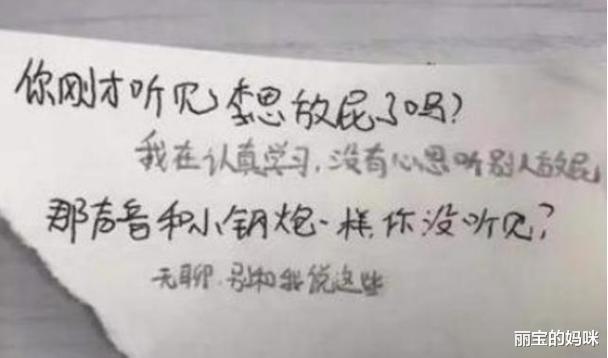 你刚才听见李思放屁了吗?
我在认真学习,没有心思听别人放屁
那声音和小钢炮一样,你没听见?
无聊.别和我说这些
丽宝的妈咪